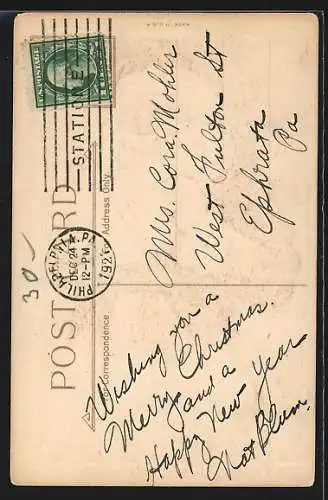 U.S. POSTAGE
STATION E
PHILADELPHIA, PA.
DEC 24
12-PM
POST CARD
Address Only.
For Correspondence.
30-
Mrs. Cora Mohler
West Fulton St
Ephrata
Pa
Wishing you a
Merry Christmas,
and a
Happy New Year
Nat Blum.